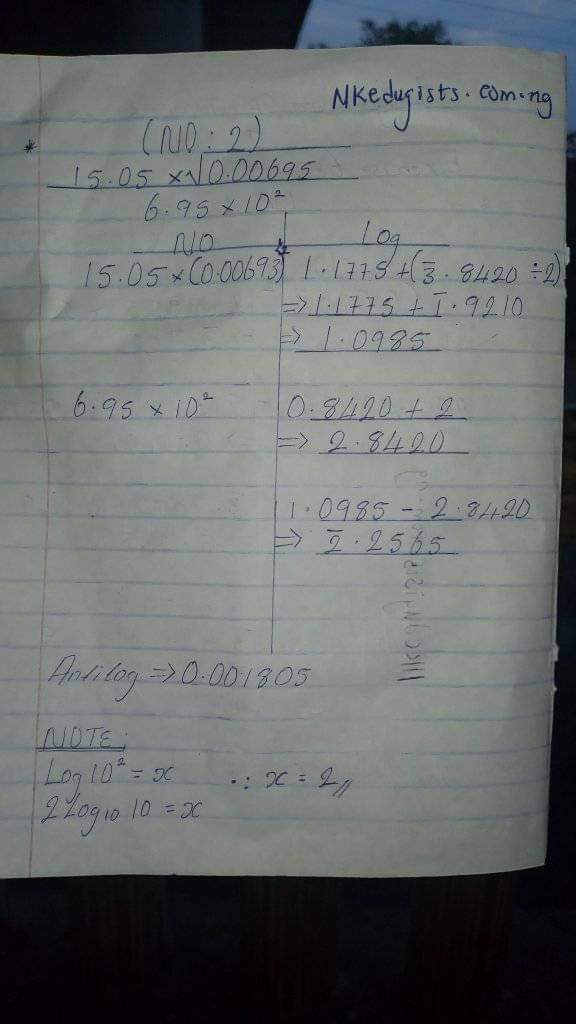 Nkedugists.com.ng
* (NO: 2)
15.05 × √0.00695
6.95 × 10²
NO Log
15.05 × (0.00693) 1.1775 + (3̅.8420 ÷ 2)
=> 1.1775 + 1̅.9210
=> 1.0985
6.95 × 10² 0.8420 + 2
=> 2.8420
1.0985 - 2.8420
=> 2̅.2565
Antilog => 0.001805
NOTE:
Log 10² = x ∴ x = 2//
2Log₁₀ 10 = x